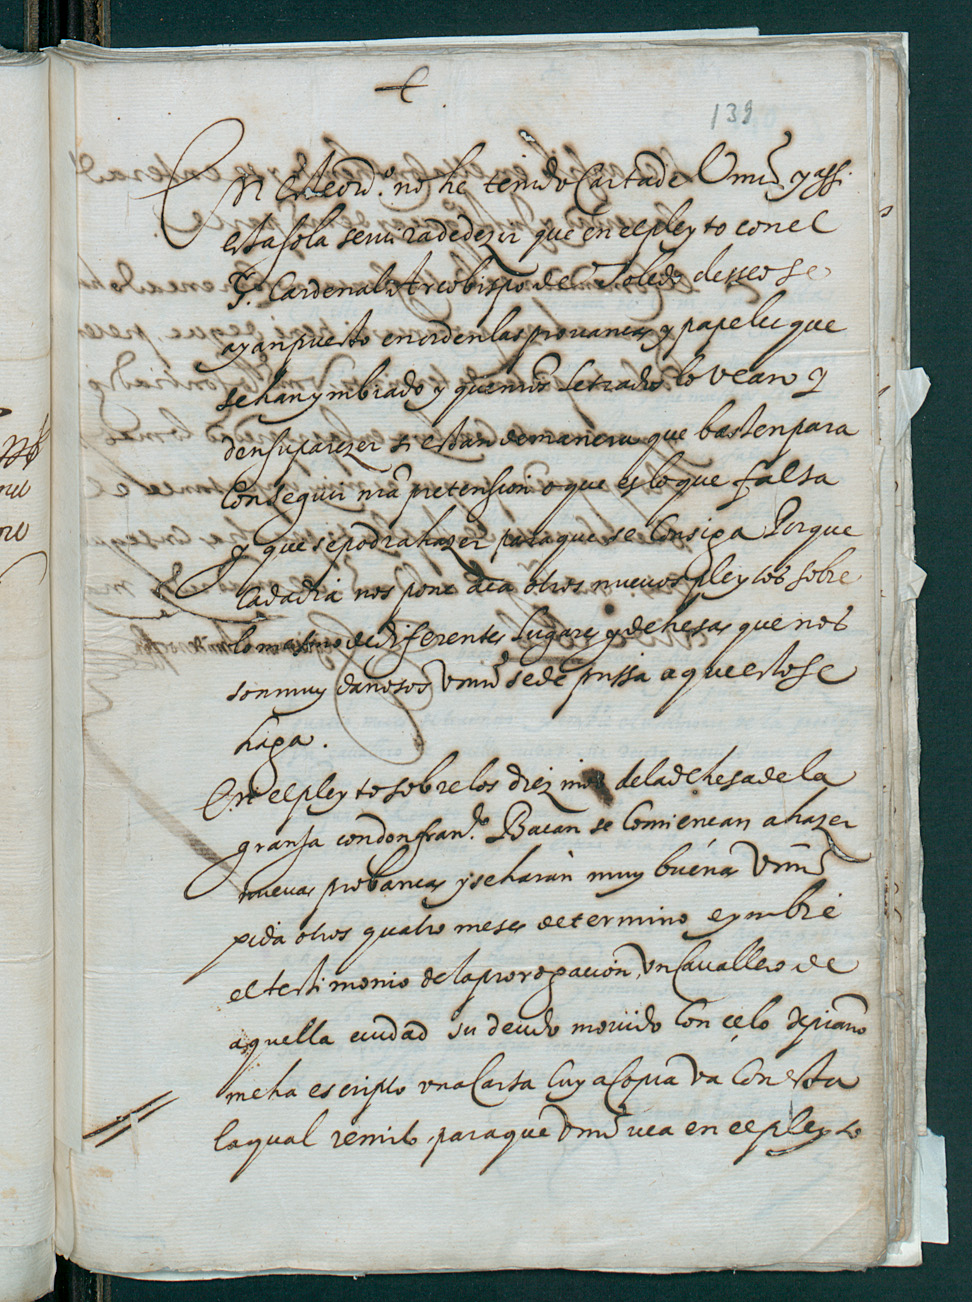 139
En Este ord.º no he tenido Carta de Vmd y assi
esta sola seruira de dezir que en el pleyto con el
S.r Cardenal Arcobispo de Toledo desseo se
ayan puesto en orden las prouancas y papeles que
se han ymbiado y que nr̄os letrados lo vean y
den su parezer si estan de manera que basten para
Conseguir nr̄a pretension o que es lo que falta
y que se podra hazer para que se Consiga Porque
cada dia nos pone aca otros nueuos pleytos sobre
lo mismo de diferentes lugares y dehesas que nos
son muy danosos Vmd se de prissa a que esto se
haga.
En el pleyto sobre los diezmos de la dehesa de la
granja con don fran.co Bacan se Comiencan a hazer
nueuas probancas y se haran muy buenas Vmd
pida otros quatro meses de termino e ymbie
el testimonio de la prorogacion, Vn Cauallero de
aquella ciudad su deudo mouido Con çelo xpiano
me ha escripto vna Carta Cuya Copia va Con esta
la qual remito para que Vmd vea en el pleyto